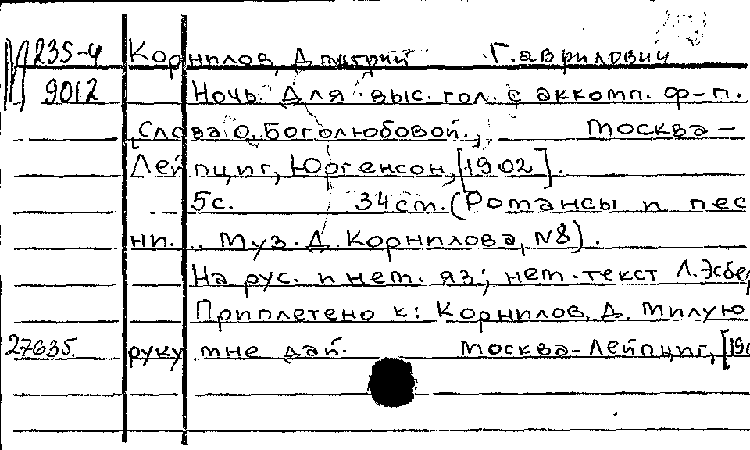 М 235-4 Корнилов, Дмитрий Гаврилович
9012 Ночь. Для выс. гол. с аккомп. ф-п.
Слова О. Боголюбовой. Москва-
Лейпциг, Юргенсон, [1902].
5с. 34 см. (Романсы и пес
ни. .. муз. Д. Корнилова, №8).
На рус. и нем. яз; нем. текст Л. Эсбе
Приплетено к: Корнилов, Д. Милую
27635 руку мне дай. Москва-Лейпциг, [19